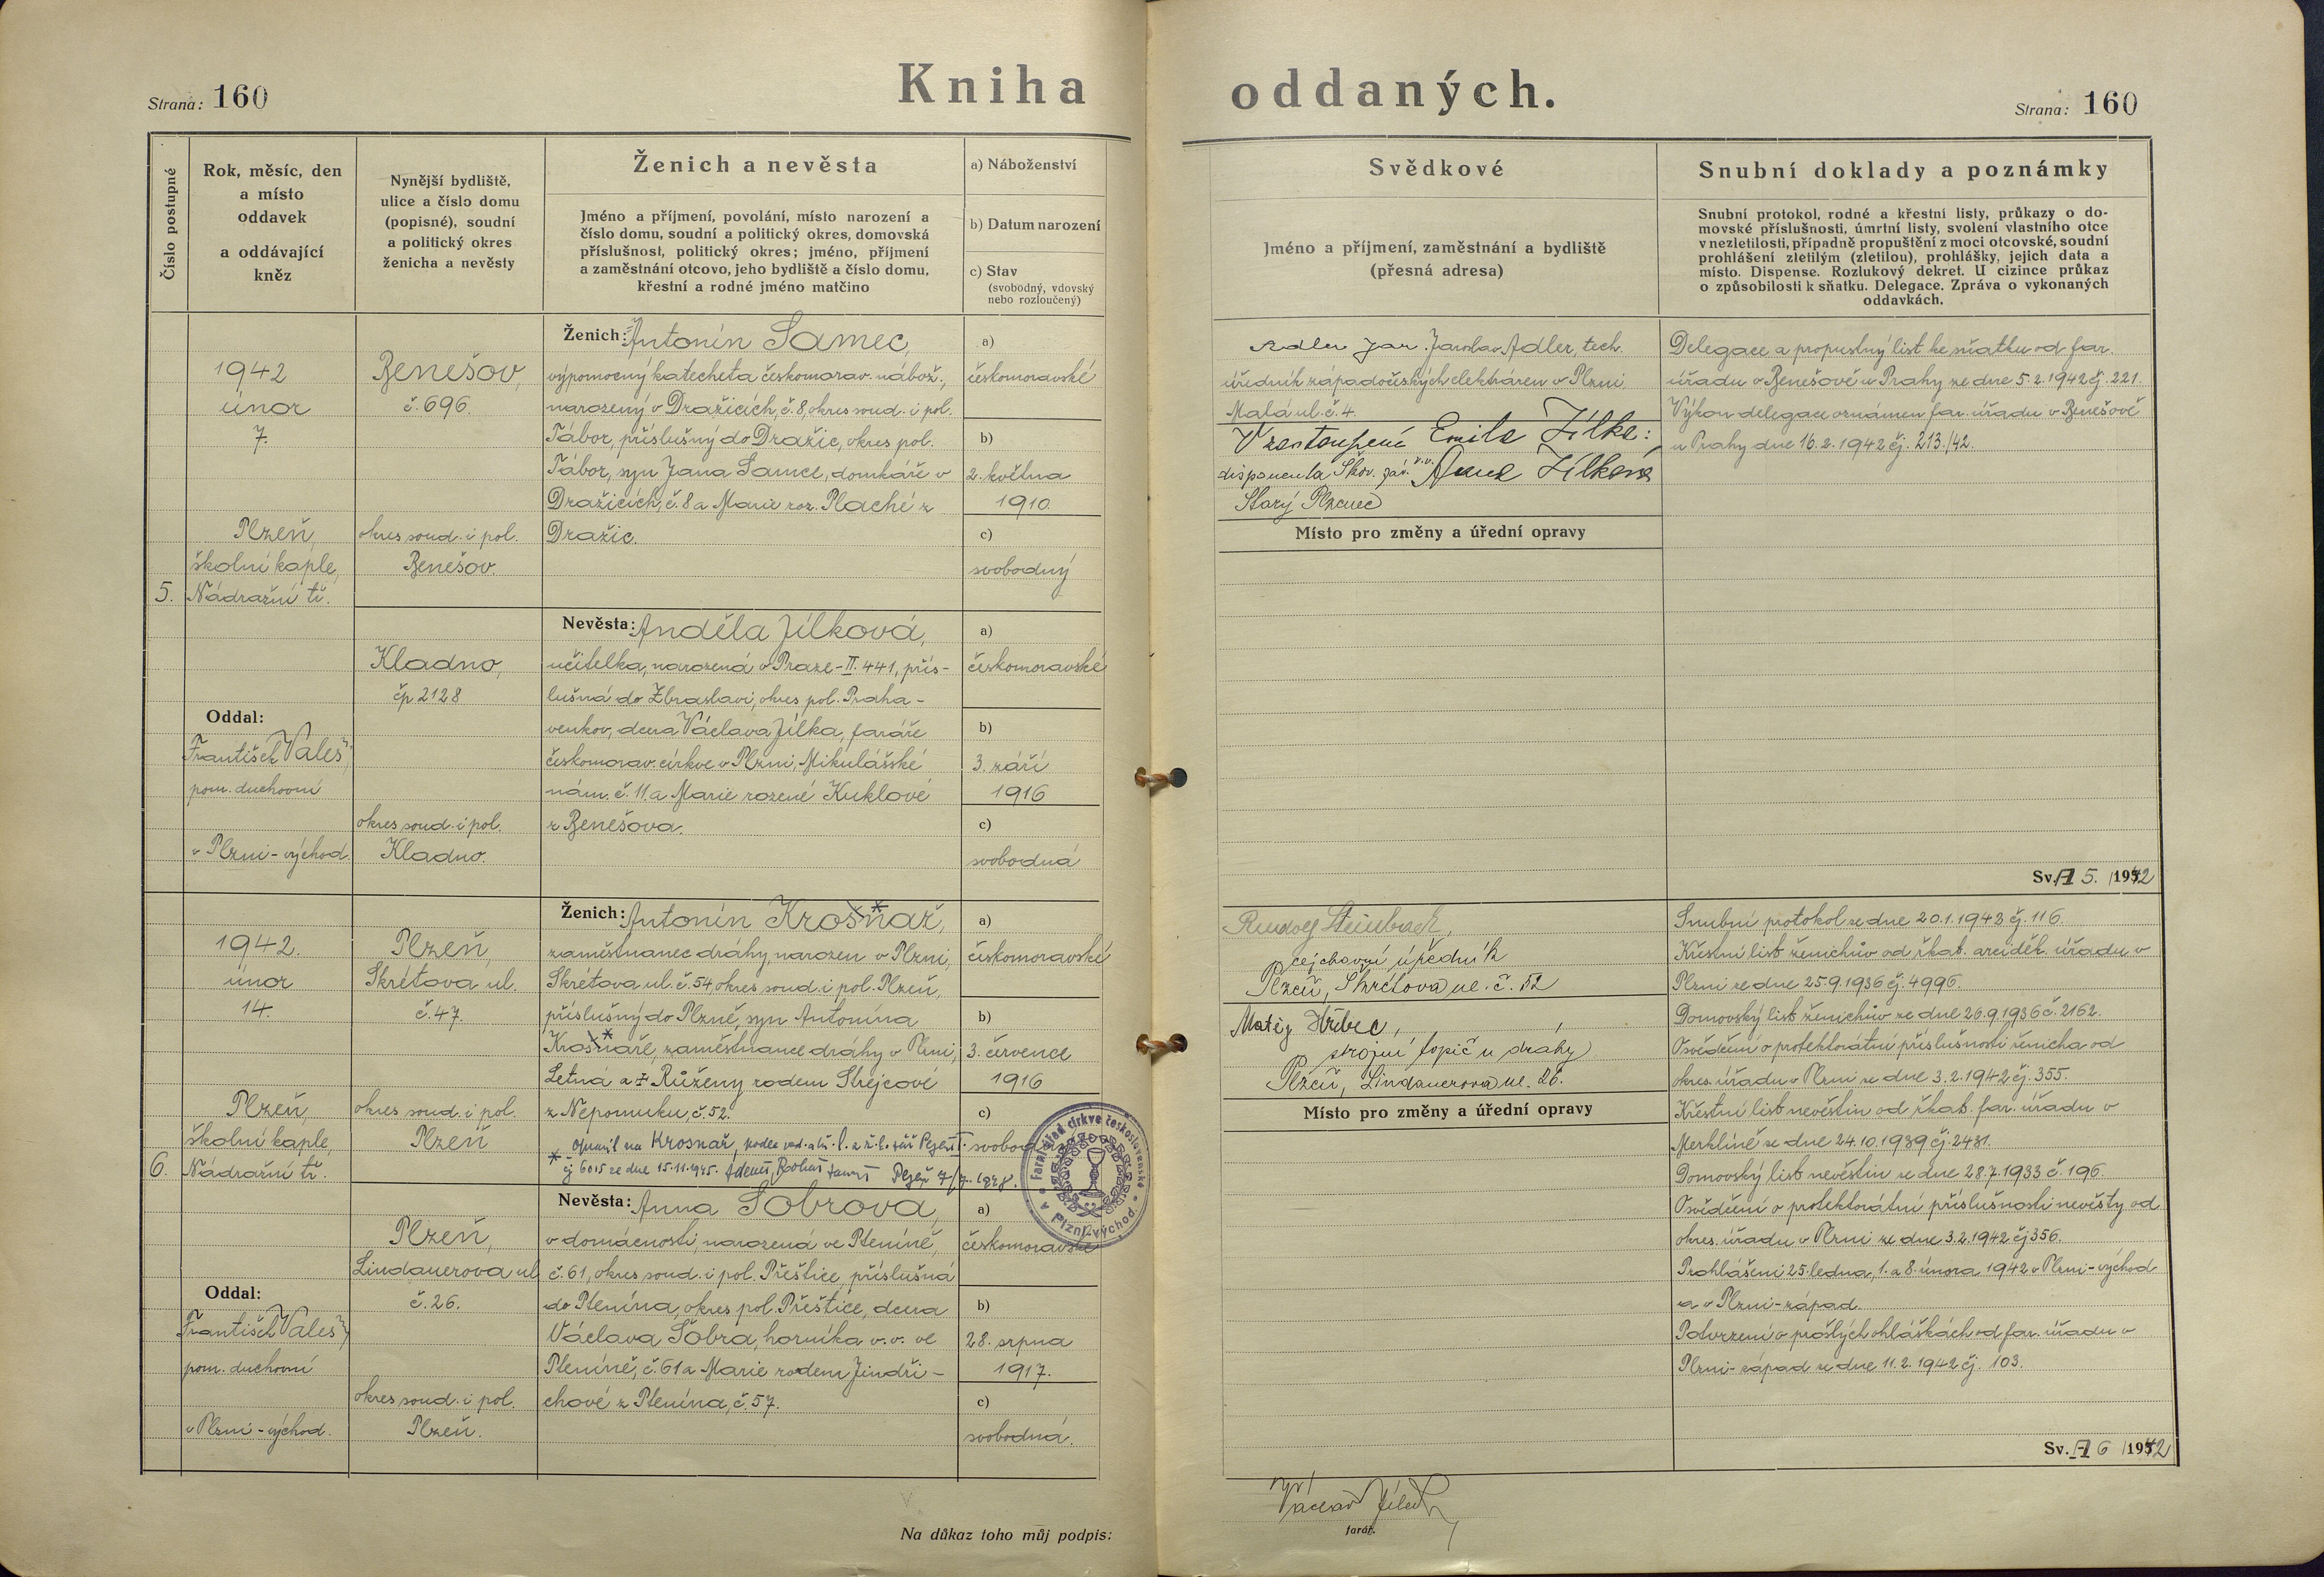 Strana: 160
Kniha oddaných.
Strana: 160
Číslo postupné
Rok, měsíc, den
a místo
oddavek
a oddávající
kněz
Nynější bydliště,
ulice a číslo domu
(popisné), soudní
a politický okres
ženicha a nevěsty
Ženich a nevěsta
Jméno a příjmení, povolání, místo narození a
číslo domu, soudní a politický okres, domovská
příslušnost, politický okres; jméno, příjmení
a zaměstnání otcovo, jeho bydliště a číslo domu,
křestní a rodné jméno matčino
a) Náboženství
b) Datum narození
c) Stav
(svobodný, vdovský
nebo rozloučený)
Svědkové
Jméno a příjmení, zaměstnání a bydliště
(přesná adresa)
Snubní doklady a poznámky
Snubní protokol, rodné a křestní listy, průkazy o do-
movské příslušnosti, úmrtní listy, svolení vlastního otce
v nezletilosti, případně propuštění z moci otcovské, soudní
prohlášení zletilým (zletilou), prohlášky, jejich data a
místo. Dispense. Rozlukový dekret. U cizince průkaz
o způsobilosti k sňatku. Delegace. Zpráva o vykonaných
oddavkách.
5.
1942
únor
7.
Plzeň,
školní kaple,
Nádražní tř.
Oddal:
František Valeš,
pom. duchovní
v Plzni-východ.
Benešov,
č. 696.
okres soud. i pol.
Benešov.
Kladno,
čp 2128
okres soud. i pol.
Kladno.
Ženich: Antonín Samec,
výpomocný katecheta českomorav. nábož.,
narozený v Dražicích, č. 8, okres soud. i pol.
Tábor, příslušný do Dražic, okres pol.
Tábor, syn Jana Samce, domkáře v
Dražicích, č. 8 a Marie roz. Plaché z
Dražic.
Nevěsta: Anděla Jílková,
učitelka, narozená v Praze-II. 441, přís-
lušná do Zbraslavi, okres pol. Praha-
venkov, dcera Václava Jílka, faráře
českomorav. církve v Plzni, Mikulášské
nám. č. 11, a Marie rozené Kuklové
z Benešova.
a)
českomoravské
b)
2. května
1910.
c)
svobodný
a)
českomoravské
b)
3. září
1916
c)
svobodná
Adler Jar. Jaroslav Adler, tech.
úředník západočeských elektráren v Plzni,
Malá ul. č. 4.
V zastoupení Emila Jílka:
disponenta Škov. záv. v.v. Anna Jílková
Starý Plzenec
Místo pro změny a úřední opravy
Delegace a propustný list ke sňatku od far.
úřadu v Benešově u Prahy ze dne 5.2.1942 čj. 221.
Výkon delegace oznámen far. úřadu v Benešově
u Prahy dne 16.2.1942 čj. 213./42.
Sv. A 5. /1942
6.
1942.
únor
14.
Plzeň,
školní kaple,
Nádražní tř.
Oddal:
František Valeš,
pom. duchovní
v Plzni-východ.
Plzeň,
Skrétova ul.
č. 47.
okres soud. i pol.
Plzeň
Plzeň,
Lindauerova ul.
č. 26.
okres soud. i pol.
Plzeň.
Ženich: Antonín Krosňař,*
zaměstnanec dráhy, narozen v Plzni,
Skrétova ul. č. 54 okres soud. i pol. Plzeň,
příslušný do Plzně, syn Antonína
Krosňáře,* zaměstnance dráhy v Plzni,
Letná a † Růženy rodem Strejcové
z Nepomuku, č. 52.
* Krosnař, podle
čj 6015 ze dne 15.11.1945.
Nevěsta: Anna Šobrová,
v domácnosti, narozená ve Pteníně,
č. 61, okres soud. i pol. Přeštice, příslušná
do Ptenína, okres pol. Přeštice, dcera
Václava Šobra, horníka v.v. ve
Pteníně, č. 61 a Marie rodem Jindři-
chové z Ptenína, č. 57.
a)
českomoravské
b)
3. července
1916
c)
svobod
Farní úřad církve československé
v Plzni-východ.
a)
českomoravské
b)
28. srpna
1917.
c)
svobodná.
Rudolf Steinbach,
cejchovní úředník
Plzeň, Skrétova ul. č. 52
Matěj Hřibec,
strojní topič u dráhy
Plzeň, Lindauerova ul. 26.
Místo pro změny a úřední opravy
Snubní protokol ze dne 20.1.1942 čj. 116.
Křestní list ženichův od řkat. arciděk. úřadu v
Plzni ze dne 25.9.1936 čj. 4996.
Domovský list ženichův ze dne 26.9.1936 č. 2162.
Osvědčení o protektorátní příslušnosti ženicha od
okres. úřadu v Plzni ze dne 3.2.1942 čj. 355.
Křestní list nevěstin od řkat. far. úřadu v
Merklíně ze dne 24.10.1939 čj. 2431.
Domovský list nevěstin ze dne 28.7.1933 č. 196.
Osvědčení o protektorátní příslušnosti nevěsty od
okres. úřadu v Plzni ze dne 3.2.1942 čj 356.
Prohlášeni 25. ledna, 1. a 8. února 1942 v Plzni-východ
a v Plzni-západ.
Potvrzení o prošlých ohláškách od far. úřadu v
Plzni-západ ze dne 11.2.1942 čj. 103.
Sv. A 6 /1942
Na důkaz toho můj podpis:
Václav Jílek
farář.